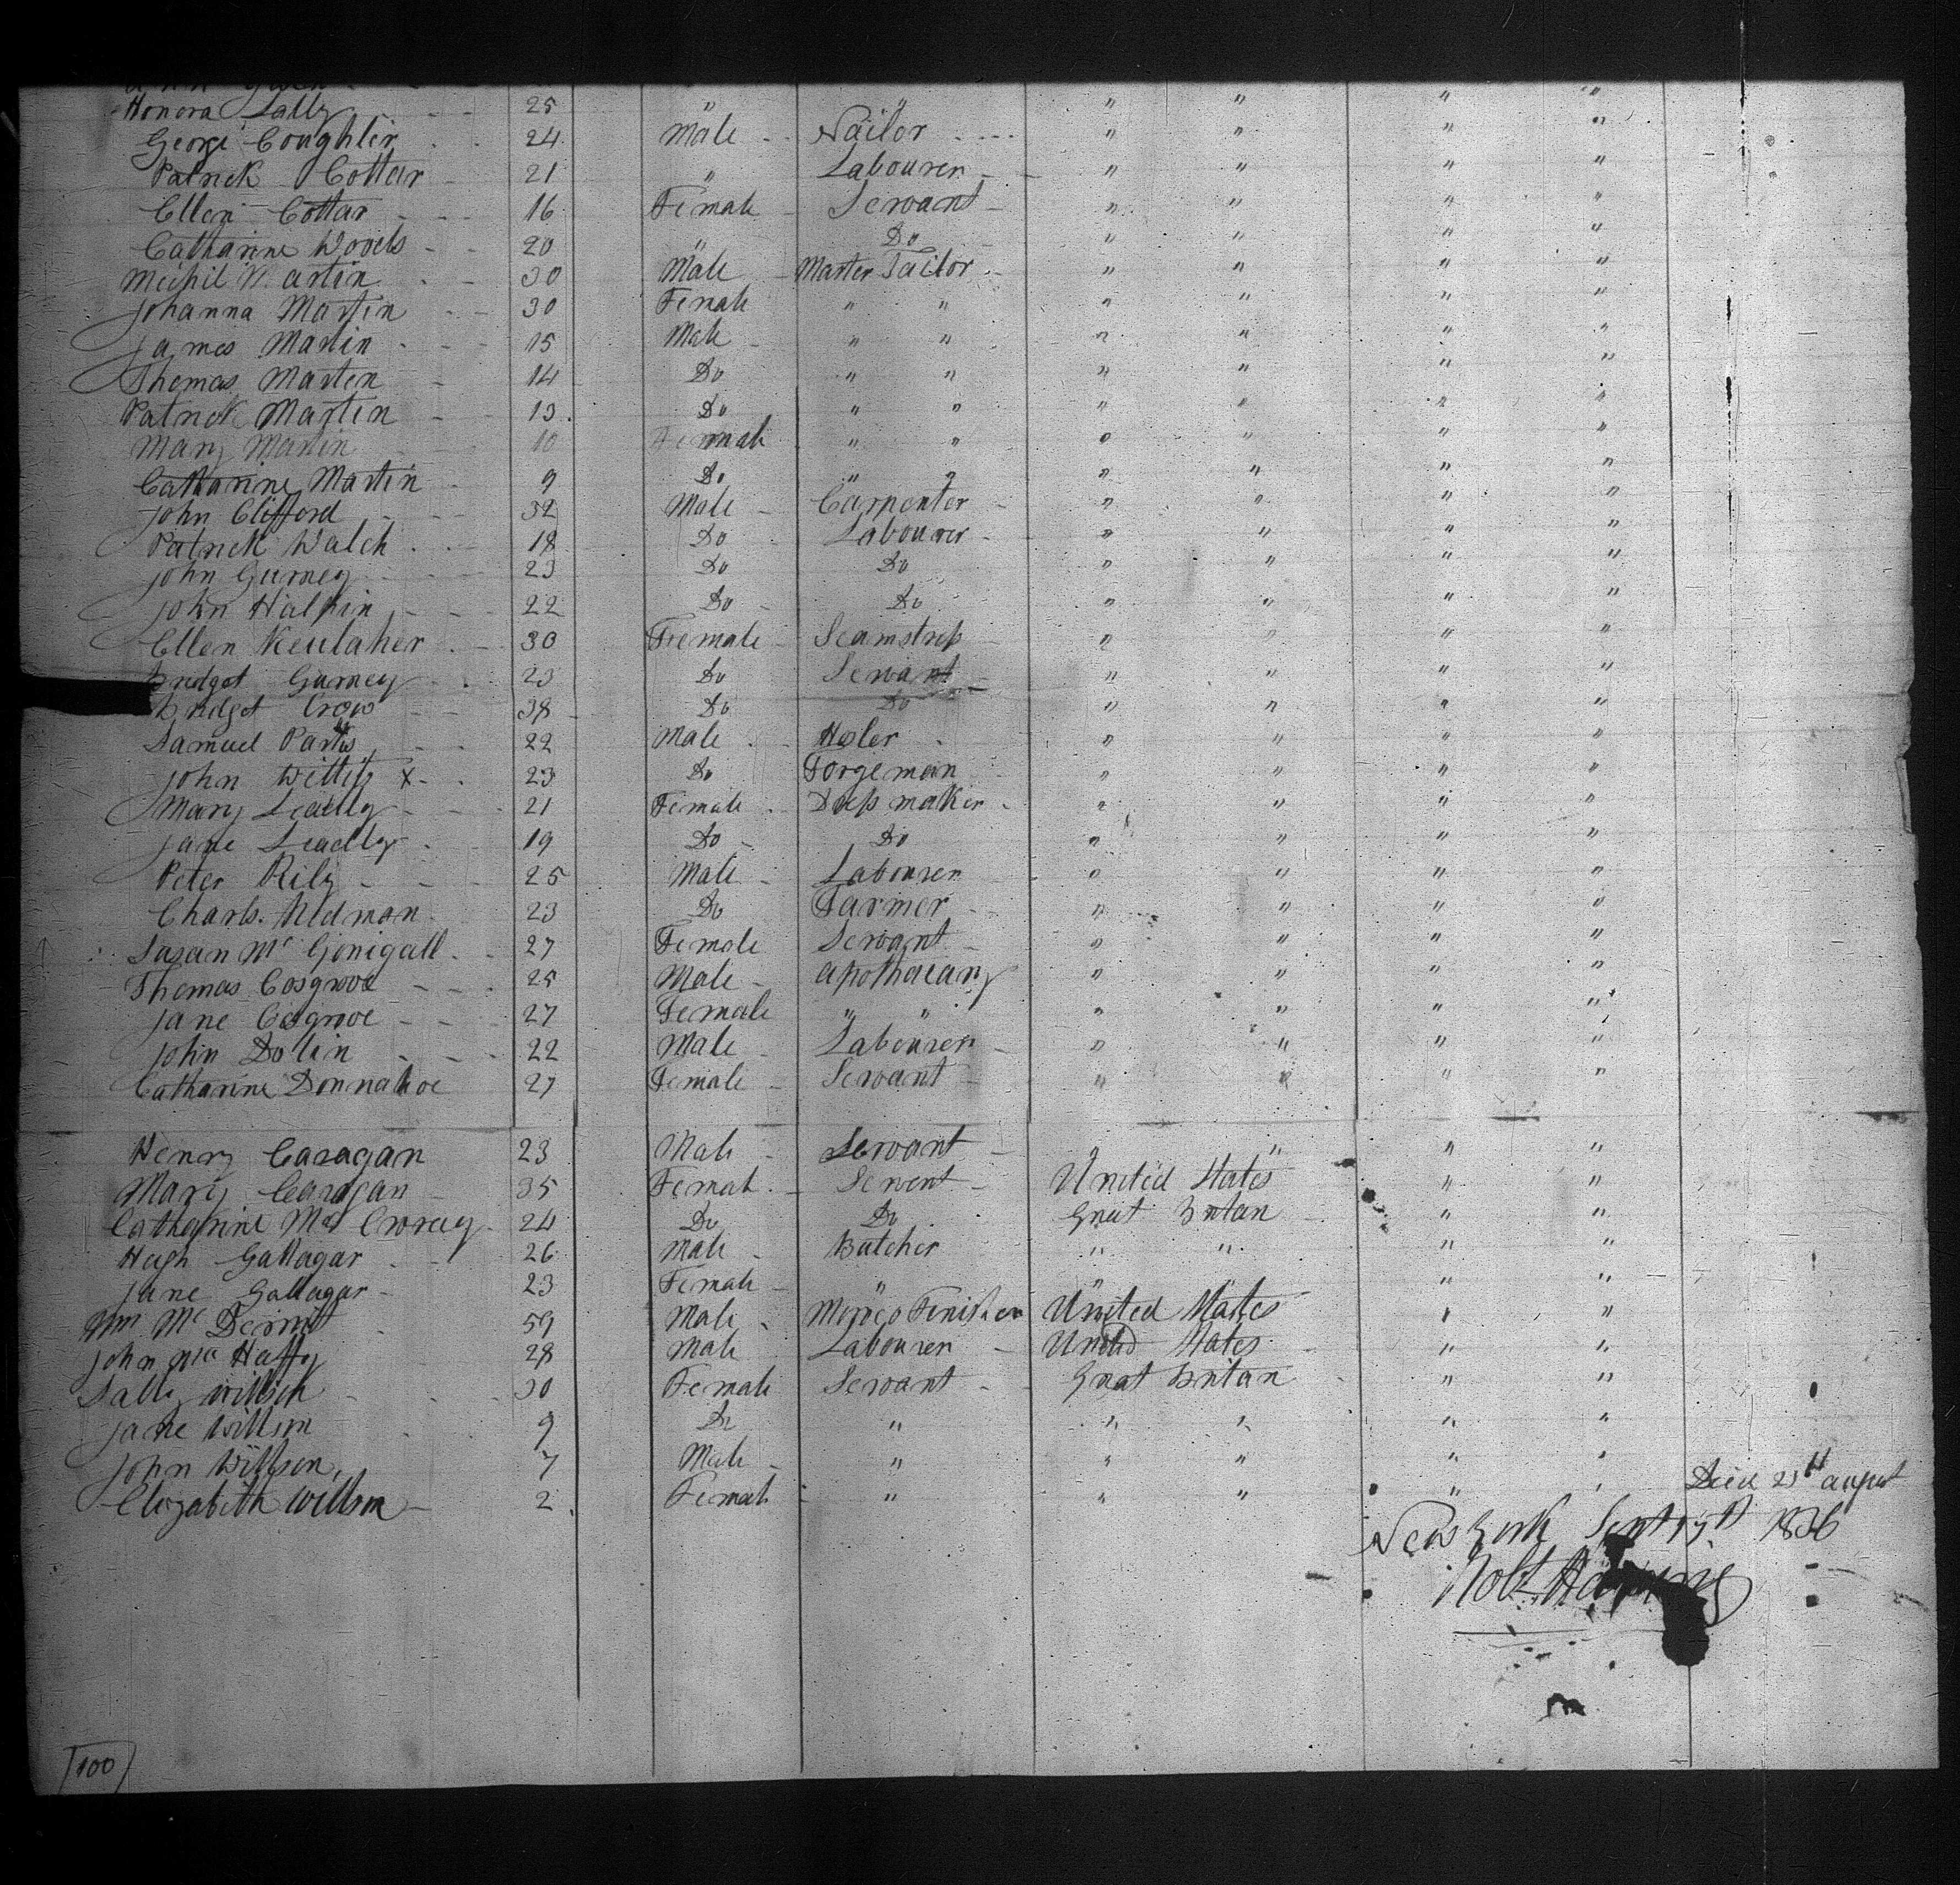 Honora Lally - - 25 " " " " " "
George Coughlin . . 24 Male - Nailor - - - - " " " "
Patrick Cottar - 21 " Labourer - - " " " "
Ellen Cottar - - - 16 Female - Servant - " " " "
Catharine Woods - - 20 " Do " " " "
Michil Martin - - 30 Male - Master Tailor - " " " "
Johanna Martin - - 30 Female " " " " " "
James Martin - - - 15 Male - " " " " " "
Thomas Marten - 14 Do " " " " " "
Patrick Martin - - 13 Do " " " " " "
Mary Martin 10 Female " " " " " "
Catharine Martin - 9 Do " " " " " "
John Clifford - - - 32 Male - Carpenter - " " " "
Patrick Walch . . - 18 Do Labourer - " " " "
John Gurney - - - 23 Do Do " " " "
John Halpin - - - 22 Do - Do " " " "
Ellen Keulaher . - 30 Female - Seamstress - " " " "
Bridget Gurney - . 23 Do Servant - " " " "
Bridget Crow - - 38 Do Do " " " "
Samuel - - 22 Male . - " " " "
John Wittig X - . 23 Do Forgeman " " " "
Mary Leadly - - - 21 Female . Dress maker - " " " "
Jane Leadly - . 19 Do - Do " " " "
Peter Rily - - - 25 Male - Labourer " " " "
Charls. Nedman . 23 Do Farmer - " " " "
Susan Mc Gonigall . - 27 Female Servant - " " " "
Thomas Cosgrove - - - 25 Male - apothacary " " " "
Jane Cosgrove - - - 27 Female " " " " " "
John Dolin - - - 22 Male - Labourer - " " " "
Catharine Donnahoe 27 Female - Servant - " " " "
Henry Caragan 23 Male - Servant - " " " "
Mary Caragan - 35 Female . - Servent - United States " "
Catharine Mc . 24 Do Do Great Britan " "
Hugh Gallagar . - 26 Male - Butcher " " " "
Jane Gallagar - 23 Female - " " " " "
Wm Mc Dermt . 59 Male - Moroco Finisher United States " "
John Mc Haffy 28 Male Labourer - United States " "
Sally Willson - . - 30 Female Servant - - Great Britan " "
Jane Willson . 9 Do " " " " "
John Willson, 7 Male - " " " " "
Elizabeth Willson - 2 . Female " " " " " Died 25th august
New York Sept 15th 1836
Robt
100